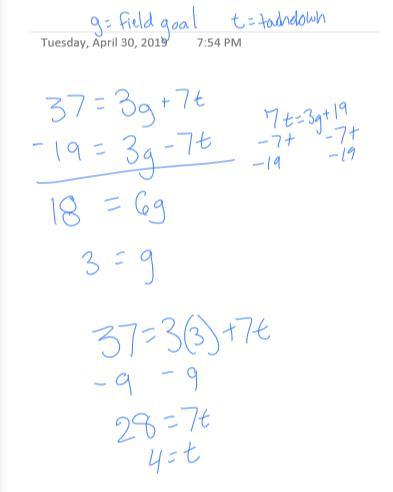 g = field goal t = touchdown
Tuesday, April 30, 2019 7:54 PM
37 = 3g + 7t
-19 = 3g - 7t
18 = 6g
3 = g
7t = 3g + 19
-7t -7t
-19 -19
37 = 3(3) + 7t
-9 -9
28 = 7t
4 = t